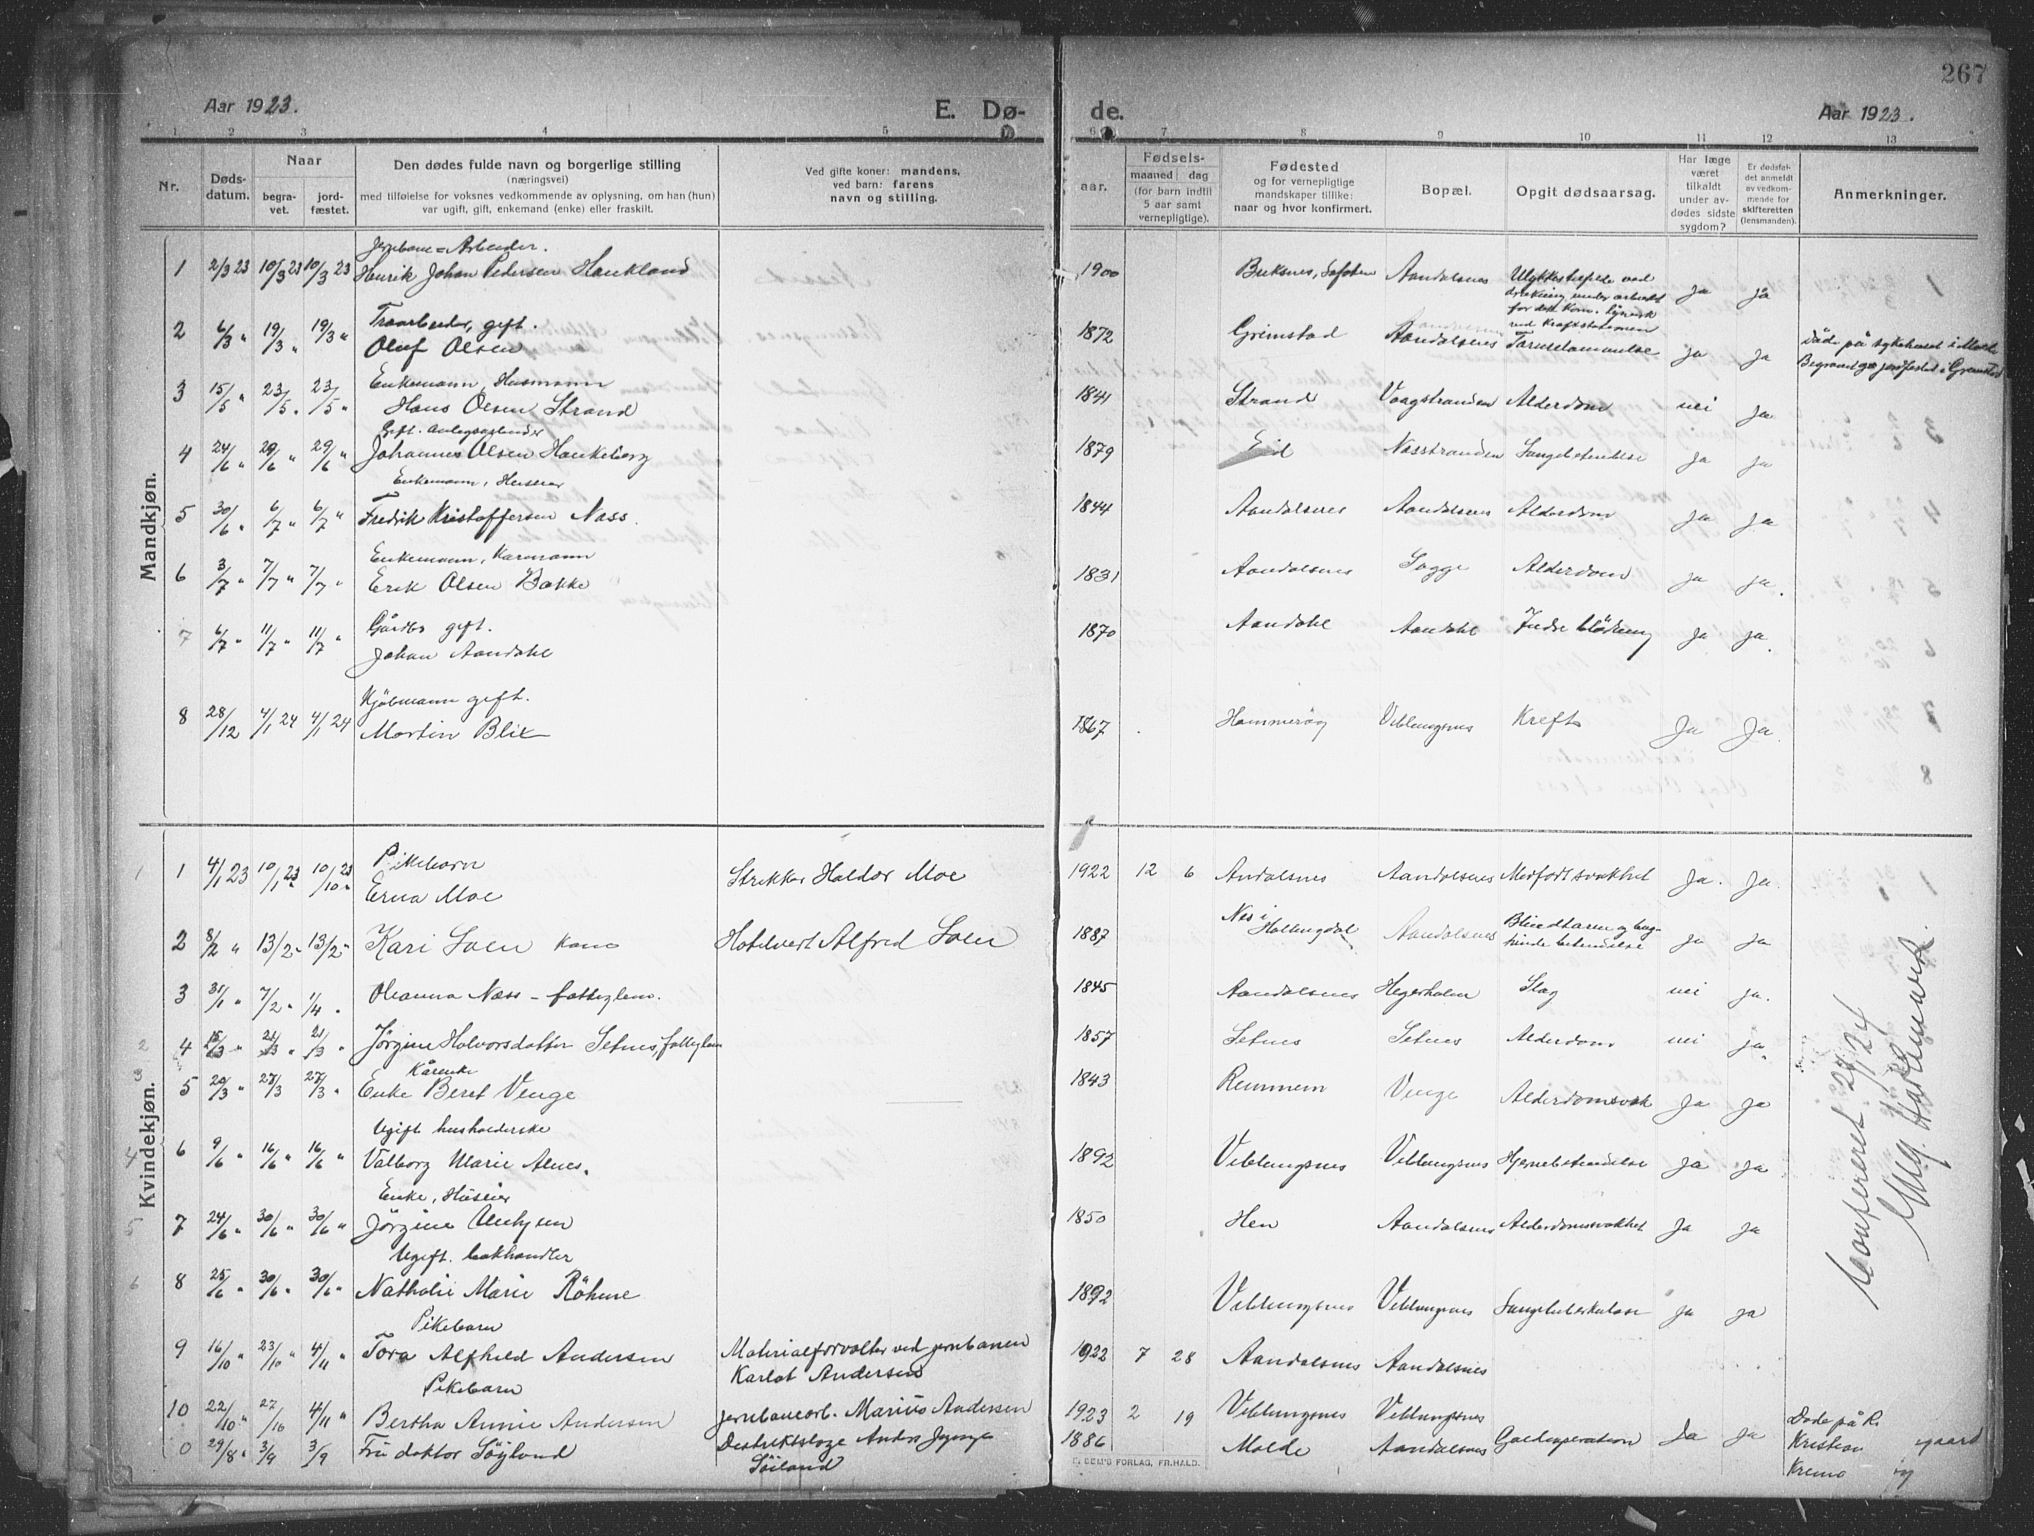 267
Aar 1923. E. Dø- de. Aar 1923.
1 2 3 4 5 6 7 8 9 10 11 12 13
Nr. Døds-datum. Naar begra-vet. jord-fæstet. Den dødes fulde navn og borgerlige stilling (næringsvei) med tilføielse for voksnes vedkommende av oplysning, om han (hun) var ugift, gift, enkemand (enke) eller fraskilt. Ved gifte koner: mandens, ved barn: farens navn og stilling. aar. Fødsels- maaned dag (for barn indtil 5 aar samt vernepligtige). Fødested og for vernepligtige mandskaper tillike: naar og hvor konfirmert. Bopæl. Opgit dødsaarsag. Har læge været tilkaldt under av-dødes sidste sygdom? Er dødsfal-det anmeldt av vedkom-mende for skifteretten (lensmanden). Anmerkninger.
Mandkjøn.
Jernbane-Arbeider.
1 2/3 23 10/3 23 10/3 23 Henrik Johan Pedersen Haukland 1900 Buksnes, Lofoten Aandalsnes Ulykkestilfelde ved under arbeidet ved kraftstationen ja ja
Træarbeider, gift.
2 6/3 " 19/3 " 19/3 " Oluf Olsen 1872 Grimstad Aandalsnes ja ja Döde på sykehuset i Molde Begravet og jordfestet i Grimstad
Enkemann, Husmann
3 15/5 " 23/5 " 23/5 " Hans Olsen Strand 1841 Strand Vaagstranden Alderdom nei ja
Gift. Anlegsarbeider
4 24/6 " 29/6 " 29/6 " Johannes Olsen Haukeberg 1879 Eid Næsstranden Lungebetendelse ja ja
Enkemann, Huseier
5 30/6 " 6/7 " 6/7 " Fredrik Kristoffersen Næss. 1844 Aandalsnes Aandalsnes Alderdom ja ja
Enkemann, Kårmann
6 3/7 " 7/7 " 7/7 " Erik Olsen Bakke 1831 Aandalsnes Sogge Alderdom ja ja.
Gårdbr gift.
7 6/7 " 11/7 " 11/7 " Johan Aandahl 1870 Aandahl Aandahl Indre blödning ja ja.
Kjöbmann gift.
8 28/12 4/1 24 4/1 24 Martin Blix 1867 Hammeröy Veblungsnes Kreft Ja Ja.
Kvindekjøn.
Pikebarn
1 4/1 23 10/1 23 10/10 23 Erna Moe Strikker Haldor Moe 1922 12 6 Andalsnes Aandalsnes Medfödt svakhet Ja. Ja.
2 8/2 " 13/2 " 13/2 " Kari Soen kone Hotelvert Alfred Soen 1887 Nes i Hallingdal Aandalsnes Blindtarm og betendelse ja ja
3 31/1 " 7/2 " 1/4 " Oleanna Næss - fattiglem. 1845 Aandalsnes Hegerholm Slag nei ja.
4 15/3 " 21/3 " 21/3 " Jörgine Halvorsdatter Setnes, fattiglem 1857 Setnes Setnes Alderdom nei ja
Kårenke
5 20/3 " 27/3 27/3 " Enke Beret Venge 1843 Remmem Venge Alderdomssvak Ja Ja
Ugift husholderske
6 9/6 " 16/6 " 16/6 " Valborg Marie Alnes. 1892 Veblungsnes Veblungsnes Hjernebetendelse ja ja
Enke, Huseier
7 24/6 " 30/6 " 30/6 " Jörgine 1850 Hen Aandalsnes Alderdomssvakhet Ja Ja
Ugift. bokhandler
8 25/6 " 30/6 " 30/6 " Nathalie Marie Röhme 1892 Veblungsnes Veblungsnes Lungetuberkulose ja ja
Pikebarn
9 16/10 " 23/10 " 4/11 " Tora Alfhild Andersen Materialforvalter ved jernbanen Karlot Andersen 1922 7 28 Aandalsnes Aandalsnes
Pikebarn
10 22/10 " 27/10 4/11 " Bertha Annie Andersen jernbanearb. Marius Andersen 1923 2 19 Veblungsnes Veblungsnes
0 29/8 " 3/9 3/9 Fru doktor Söyland Destriktslæge Söiland 1886 Molde Aandalsnes Ja Ja Döde på R. Kristian
Confereret 24
E. SEM'S FORLAG, FR.HALD.